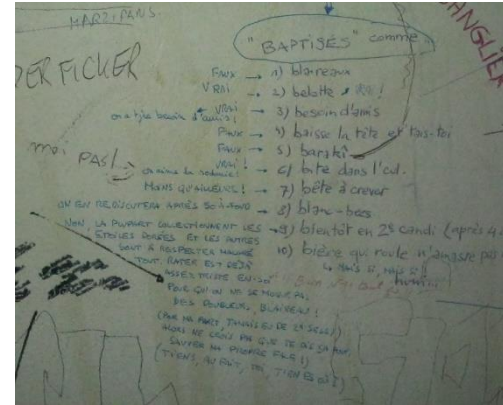 MARZIPANS
DER FICKER
SANGLIER
"BAPTISÉS" comme
FAUX → 1) blaireaux
VRAI → 2) belotte
VRAI → 3) besoin d'amis
on a tjrs besoin d'amis!
FAUX → 4) baisse la tête et tais-toi
FAUX → 5) baraki
moi PAS!
VRAI! → 6) bite dans l'cul.
on aime la sodomie!
MOINS QU'AILLEURS! → 7) bête à crever
ON EN REDISCUTERA APRÈS 50 À FOND → 8) blanc-becs
NON, LA PLUPART COLLECTIONNENT LES → 9) bientôt en 2e candi (après 4
ÉTOILES DORÉES ET LES AUTRES
SONT À RESPECTER MALGRÉ
TOUT. RATER EST DÉJÀ
ASSEZ TRISTE EN SOI
10) bière qui roule n'amasse pas
↳ MAIS SI, MAIS SI!!
POUR QU'ON NE SE MOQUE PAS
DES DOUBLEURS, BLAIREAU!
(POUR MA PART, JAMAIS EU DE 2e SESS)
ALORS NE CROIS PAS QUE JE DIS ÇA POUR
SAUVER MA PROPRE FACE!)
(TIENS, AU FAIT, TOI, T'EN ES OÙ?)